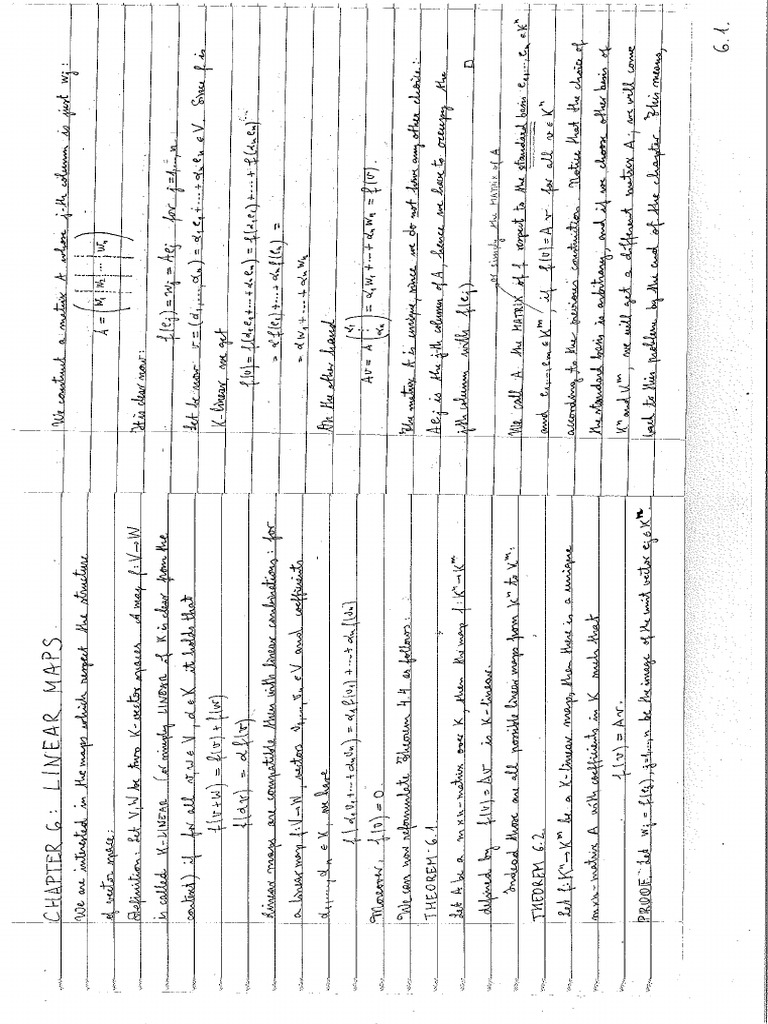 CHAPTER 6: LINEAR MAPS.
We are interested in the maps which respect the structure
of vector space:
Definition: Let V, W be two K-vector spaces. A map f: V→W
is called K-LINEAR (or simply LINEAR if K is clear from the
context) if for all v, w ∈ V, α ∈ K it holds that
f(v+w) = f(v) + f(w)
f(αv) = α f(v)
Linear maps are compatible then with linear combinations: for
a linear map f: V→W, vectors v₁,...,vₙ ∈ V and coefficients
α₁,...,αₙ ∈ K, we have
f(α₁v₁+...+αₙvₙ) = α₁f(v₁)+...+αₙf(vₙ)
Moreover, f(0) = 0.
We can now reformulate Theorem 4.4 as follows:
THEOREM 6.1
Let A be a m×n-matrix over K, then the map f: Kⁿ→Kᵐ
defined by f(v) = Av is K-linear.
Indeed those are all possible linear maps from Kⁿ to Kᵐ:
THEOREM 6.2.
Let f: Kⁿ→Kᵐ be a K-linear map, then there is a unique
m×n-matrix A with coefficients in K such that
f(v) = Av.
PROOF: Let wⱼ = f(eⱼ), j=1,...,n be the image of the unit vector eⱼ ∈ Kⁿ.
We construct a matrix A whose j-th column is just wⱼ:
A = (w₁ w₂ ... wₙ)
It is clear now:
f(eⱼ) = wⱼ = Aeⱼ for j=1,...,n
Let be now v = (α₁,...,αₙ) = α₁e₁+...+αₙeₙ ∈ V. Since f is
K-linear we get
f(v) = f(α₁e₁+...+αₙeₙ) = f(α₁e₁)+...+f(αₙeₙ) =
= α₁f(e₁)+...+αₙf(eₙ) =
= α₁w₁+...+αₙwₙ
On the other hand
Av = A (α₁ ⋮ αₙ) = α₁w₁+...+αₙwₙ = f(v).
The matrix A is unique, since we do not have any other choice:
Aeⱼ is the j-th column of A, hence we have to occupy the
j-th column with f(eⱼ) □
or simply the MATRIX of A
We call A the MATRIX of f respect to the standard basis e₁,...,eₙ ∈ Kⁿ
and e₁,...,eₘ ∈ Kᵐ, if f(v) = Av for all v ∈ Kⁿ
according to the previous construction. Notice that the choice of
the standard basis is arbitrary, and if we choose other basis of
Kⁿ and Kᵐ, we will get a different matrix A; we will come
back to this problem by the end of the chapter. This means,
6.1.